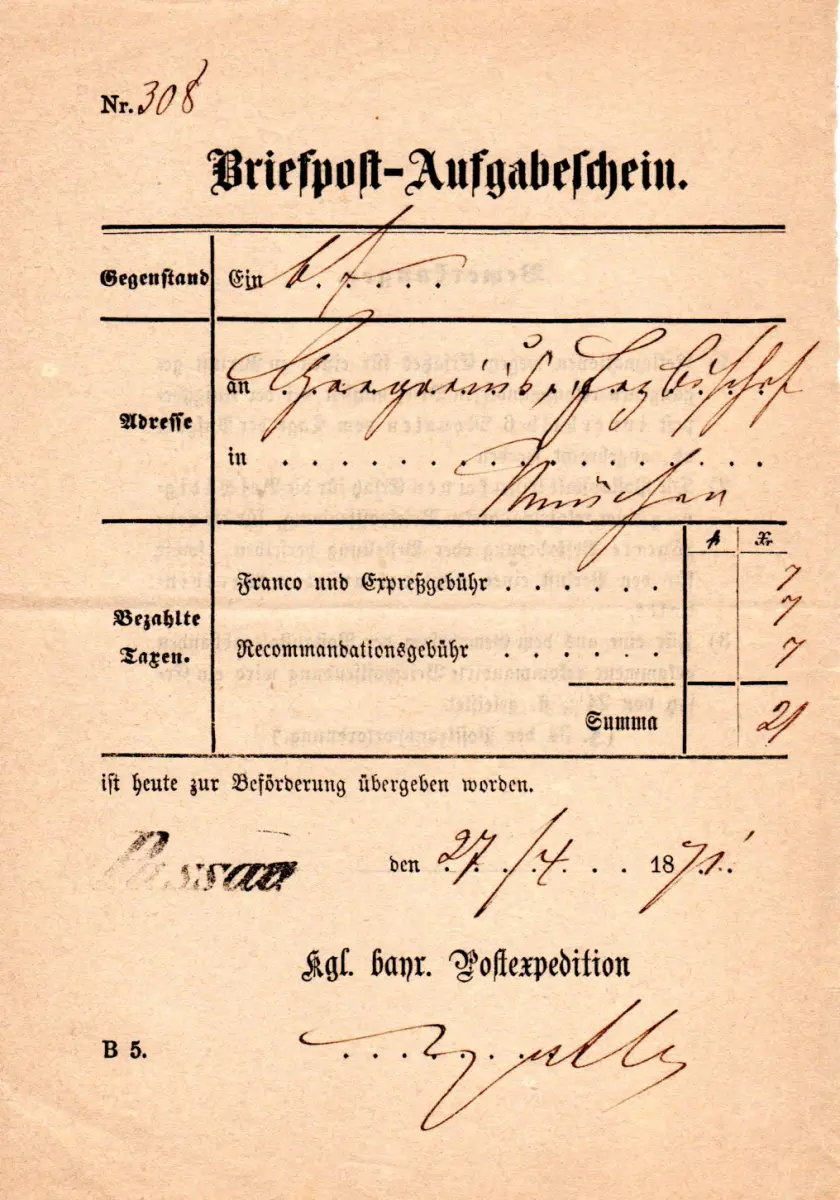 Nr. 308
Briefpost-Aufgabeschein.
Gegenstand Ein
Adresse
an Gregorius, Erzbischof
in München
fl Xr.
Bezahlte Taxen.
Franco und Expreßgebühr . . . . . . 7
7
Recommandationsgebühr . . . . . . 7
Summa 21
ist heute zur Beförderung übergeben worden.
Passau den 27/4. 1871.
Kgl. bayr. Postexpedition
B 5.